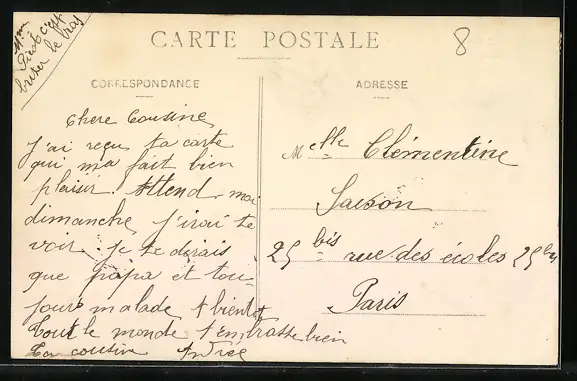 Mme
Piedoc s'est
briser le bras
CARTE POSTALE
8
CORRESPONDANCE
ADRESSE
Chere Cousine
J'ai reçu ta carte
qui ma fait bien
plaisir. Attend moi
dimanche j'irai te
voir. Je te dirais
que papa et tou-
jours malade A bientot
Tout le monde t'embrasse bien
Ta cousin André
Melle Clémentine
Saison
25 bis rue des écoles 25 bis
Paris